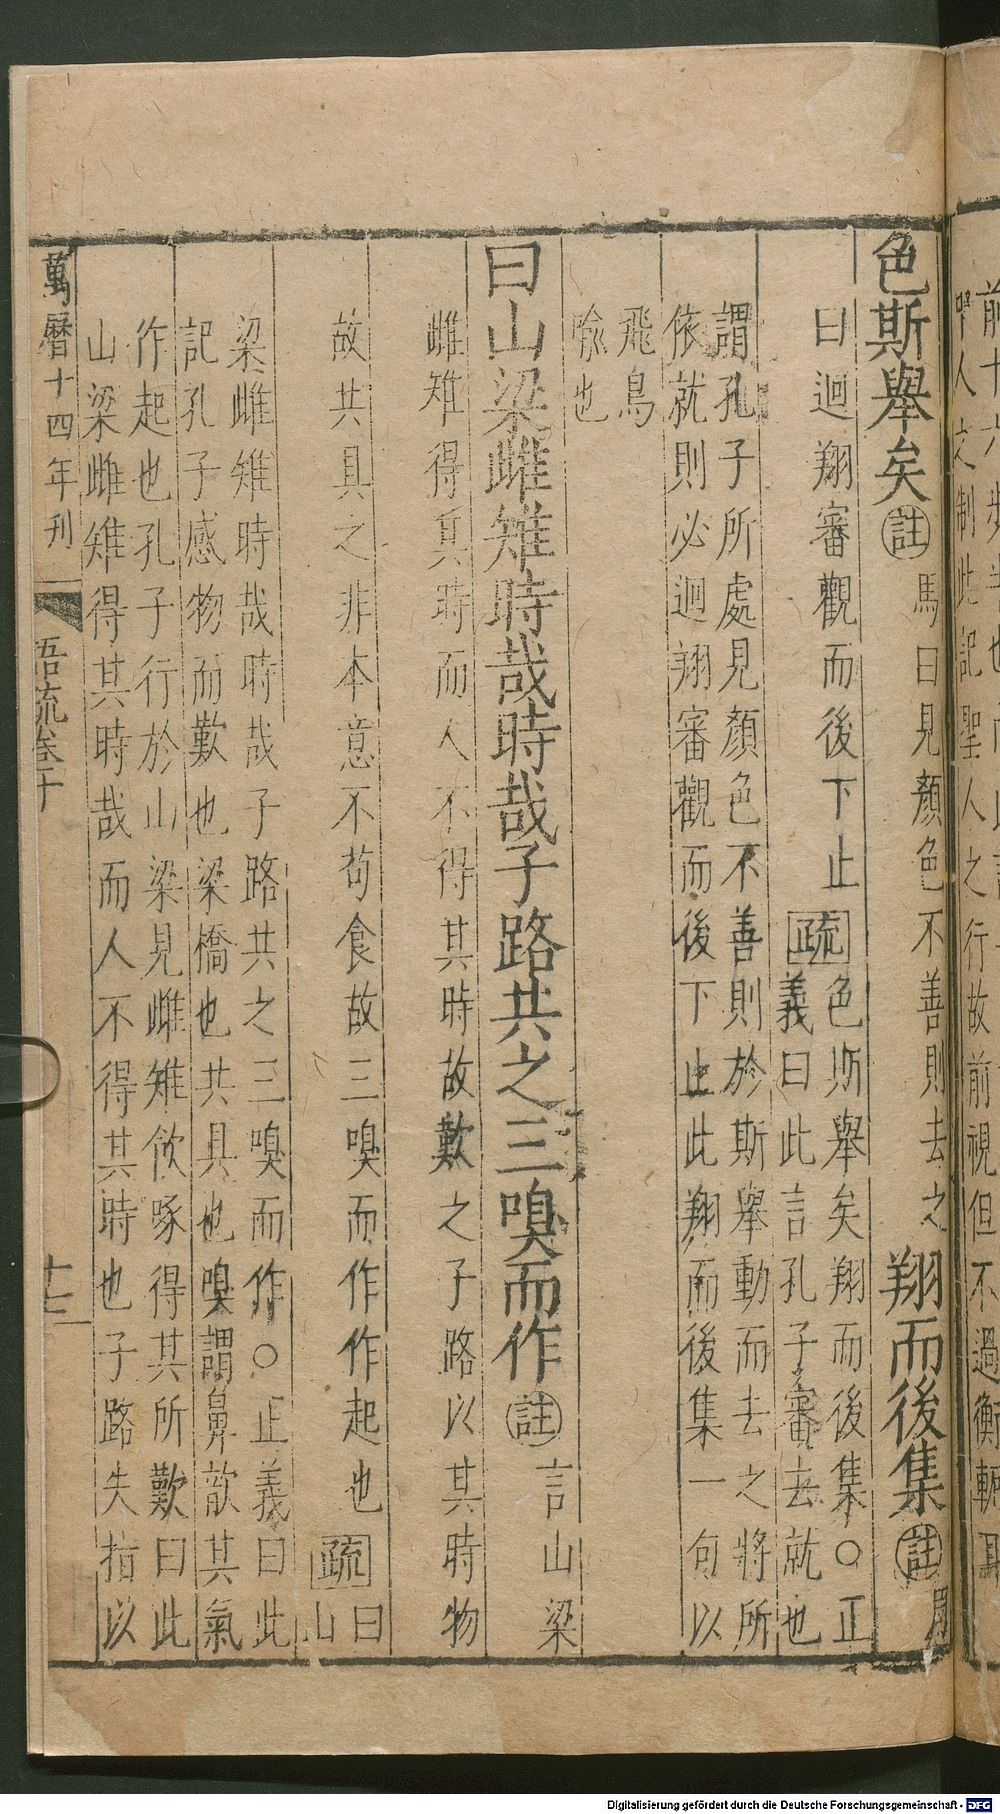 人之制此記聖人之行故前視但不過衡軛耳
色斯舉矣註馬曰見顏色不善則去之翔而後集註周
曰迴翔審觀而後下止疏色斯舉矣翔而後集○正
義曰此言孔子審去就也
謂孔子所處見顏色不善則於斯舉動而去之將所
依就則必迴翔審觀而後下止此翔而後集一句以
飛鳥
喻也
曰山梁雌雉時哉時哉子路共之三嗅而作註言山梁
雌雉得其時而人不得其時故歎之子路以其時物
故共具之非本意不苟食故三嗅而作作起也疏曰
山
梁雌雉時哉時哉子路共之三嗅而作○正義曰此
記孔子感物而歎也梁橋也共具也嗅謂鼻歆其氣
作起也孔子行於山梁見雌雉飲啄得其所歎曰此
山梁雌雉得其時哉而人不得其時也子路失指以
萬曆十四年刊 語疏卷十 十三
Digitalisierung gefördert durch die Deutsche Forschungsgemeinschaft - DFG